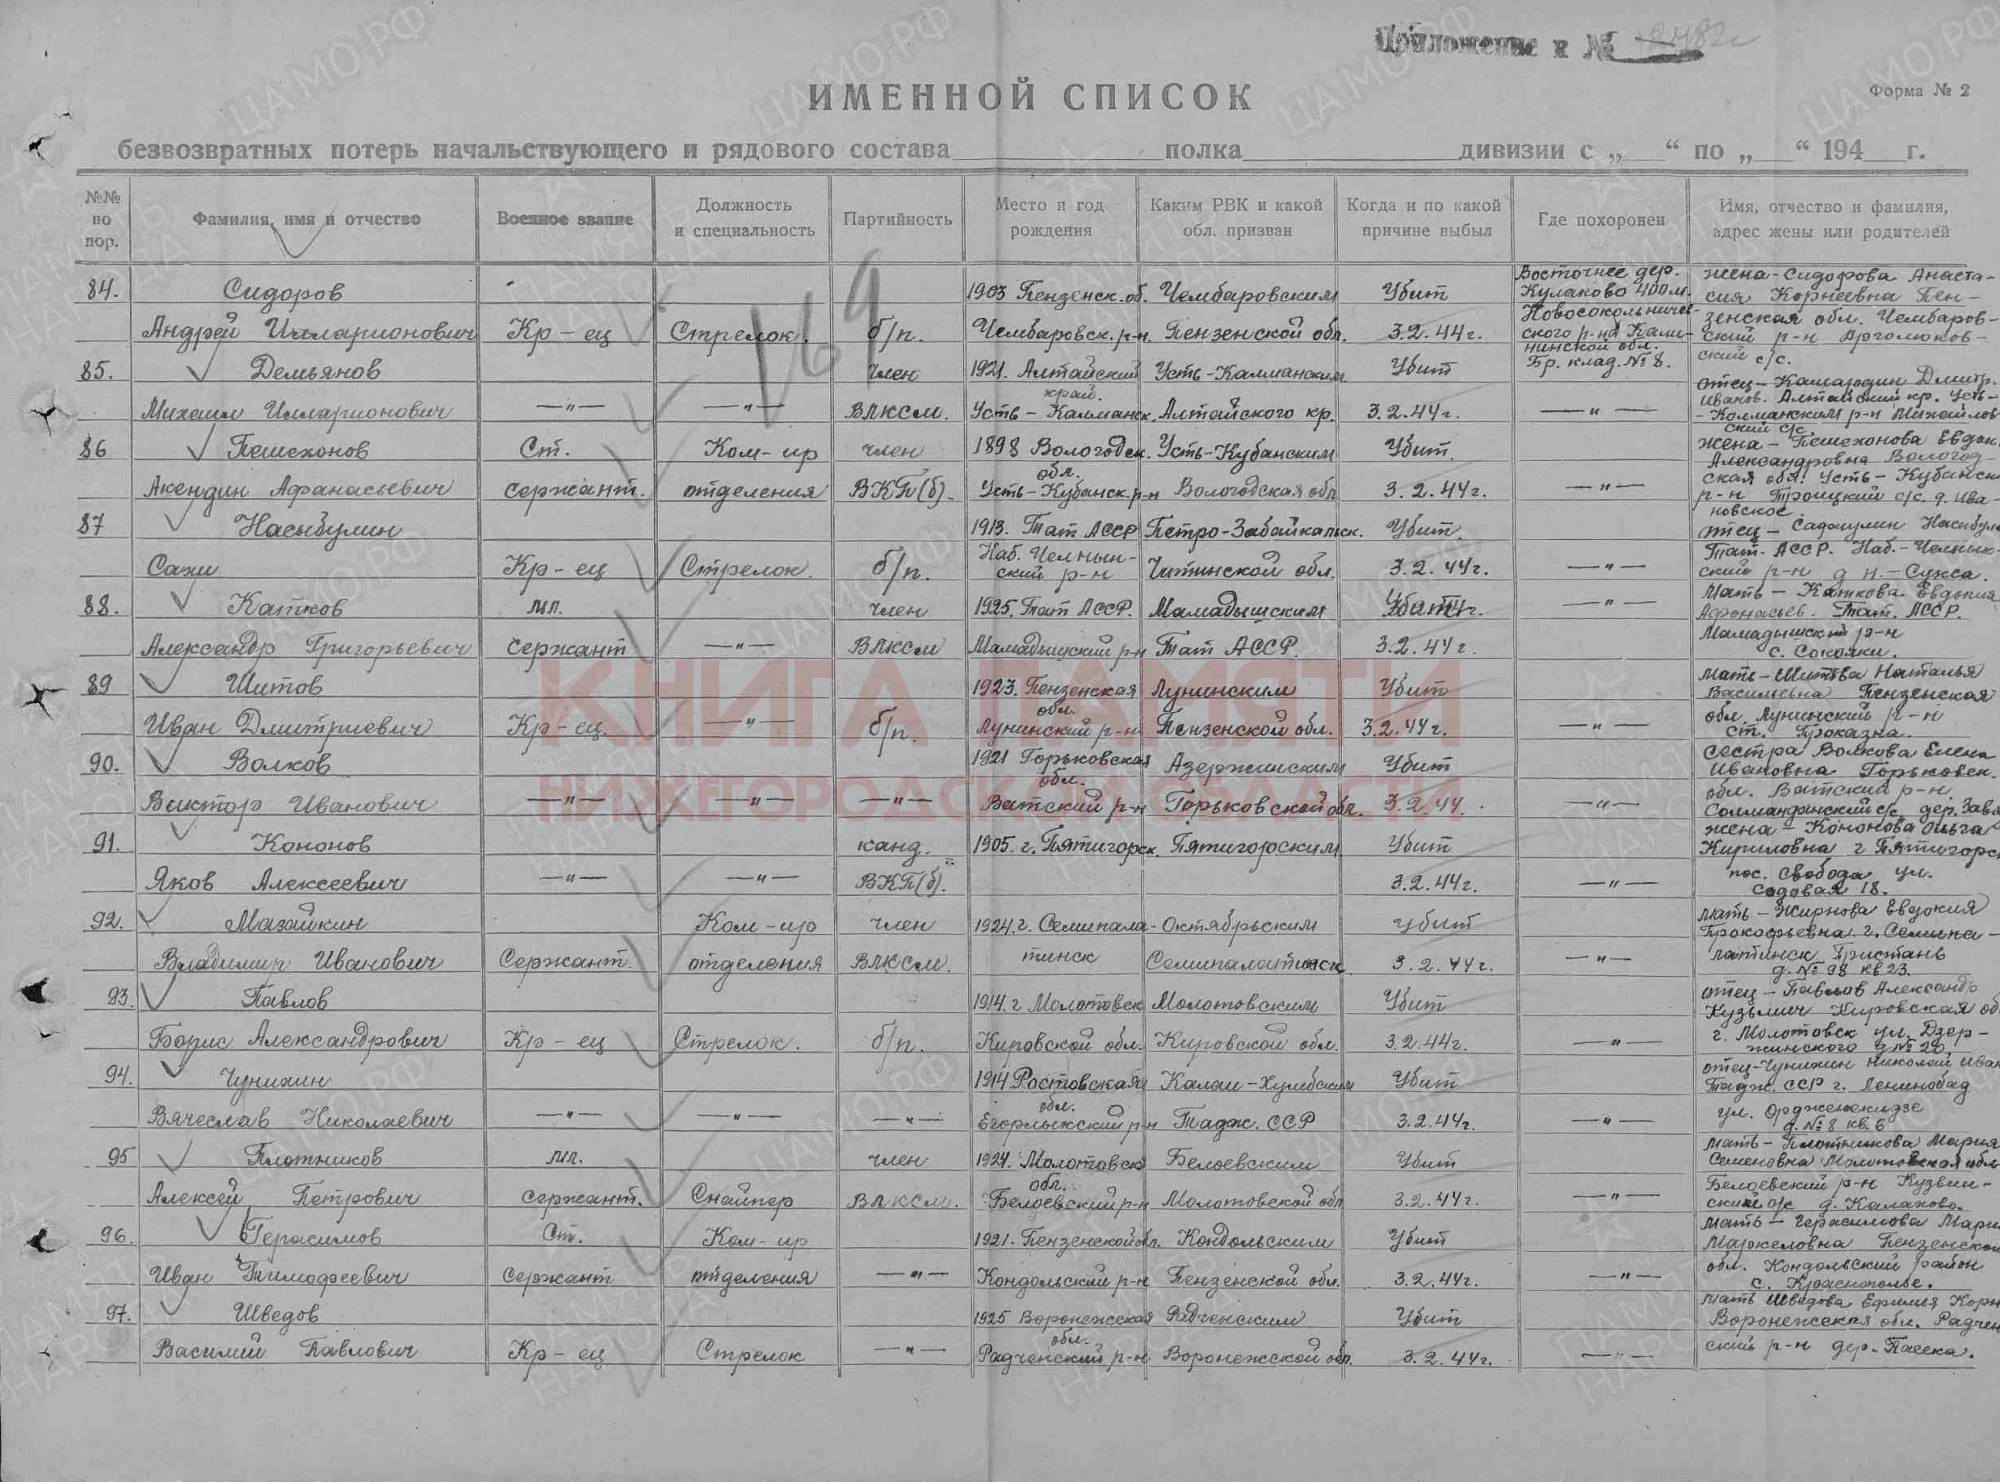 Приложение к №
ИМЕННОЙ СПИСОК
Форма № 2
безвозвратных потерь начальствующего и рядового состава полка дивизии с „ “ по „ “ 194 г.
№№ по пор.
Фамилия, имя и отчество
Военное звание
Должность и специальность
Партийность
Место и год рождения
Каким РВК и какой обл. призван
Когда и по какой причине выбыл
Где похоронен
Имя, отчество и фамилия, адрес жены или родителей
169
84. Сидоров 1903 Пензенск. об. Чембаровским Убит Восточнее дер. Кулаково 400 м. жена - Сидорова Анаста-
сия Корнеевна Пен-
Андрей Илларионович Кр-ец Стрелок. б/п. Чембаровск. р-н. Пензенской обл. 3.2.44г. Новосокольничев-
ского р-на Кали-
нинской обл.
Бр. клад. № 8.
зенская обл. Чембаров-
ский р-н
ский с/с.
85. Демьянов член 1921. Алтайский край. Усть-Калманским Убит
Михаил Илларионович —"— —"— ВЛКСМ. Усть-Калманск. Алтайского кр. 3.2.44г. —"— отец - Дмитр.
Иванов. Алтайский кр. Усть-
-Калманским р-н Михайлов
ский с/с.
86 Пешехонов Ст. Ком-ир член 1898 Вологодск. обл. Усть-Кубанским Убит. жена - Пешехонова Евдок.
Александровна Вологод-
Акендин Афанасьевич сержант. отделения ВКП(б). Усть-Кубанск. р-н Вологодская обл 3.2.44г. —"— ская обл. Усть-Кубанск
р-н Троицкий с/с. д. Ива-
новское.
87 Насыбулин 1913. Тат АССР Петро-Забайкальск. Убит. отец -
Сахи Кр-ец Стрелок. б/п. Наб. Челнын-
ский р-н Читинской обл. 3.2.44г. —"— Тат. АССР. Наб.-Челнык-
ский р-н
88. Катков мл. член 1925. Тат АССР. Мамадышским Убит —"— Мать - Каткова Евдокия
Афонасьев. Тат. АССР.
Александр Григорьевич сержант —"— ВЛКСМ Мамадышский р-н Тат АССР. 3.2.44г. Мамадышский р-н
с. Соколки.
89 Шитов 1923. Пензенская обл. Лунинским Убит мать - Шитова Наталья
Васильевна Пензенская
Иван Дмитриевич Кр-ец. —"— б/п. Лунинский р-н Пензенской обл. 3.2.44г. —"— обл. Лунинский р-н
ст. Проказна.
90. Волков 1921 Горьковская обл. Азержинским Убит сестра Волкова Елена
Ивановна Горьковск.
Виктор Иванович —"— —"— —"— Ватский р-н Горьковской обл. 3.2.44. —"— обл. Ватский р-н
с/с дер.
91. Кононов канд. 1905. г. Пятигорск. Пятигорским. Убит жена - Кононова Ольга
Кириловна г Пятигорск
Яков Алексеевич —"— —"— ВКП(б). 3.2.44г. —"— пос. Свобода ул.
Садовая 18.
92. Мазайкин Ком-ир член 1924. г. Семипала- Октябрьским Убит мать - Жирнова Евдокия
Прокофьевна. г. Семипа-
Владимир Иванович Сержант. отделения ВЛКСМ. тинск Семипалатинск. 3.2.44г. —"— латинск Пристань
д. № 98 кв 23.
93. Павлов 1914. г Молотовск Молотовским Убит отец - Павлов Александр
Кузьмич Кировская об
Борис Александрович Кр-ец Стрелок. б/п. Кировской обл. Кировской обл. 3.2.44г. —"— г. Молотовск ул. Дзер-
жинского д № 20.
94. Чунихин 1914 Ростовская обл. Калаи-Хумбским Убит отец - Чунихин Николай Иван
Тадж. ССР г. Ленинобад
Вячеслав Николаевич —"— —"— —"— Егорлыкский р-н Тадж. ССР 3.2.44г. —"— ул. Орджоникидзе
д. № 8 кв. 6
95 Плотников мл. член 1924. Молотовск обл. Белоевским Убит мать - Плотникова Мария
Семеновна Молотовская обл
Алексей Петрович сержант. Снайпер ВЛКСМ. Белоевский р-н Молотовской обл 3.2.44г. —"— Белоевский р-н Кузвин-
ский с/с д. Калахово.
96. Герасимов Ст. Ком-ир 1921. Пензенской обл. Кондольским Убит мать - Герасимова Мари
Маркеловна Пензенской
Иван Тимофеевич сержант отделения —"— Кондольский р-н Пензенской обл. 3.2.44г. —"— обл. Кондольский район
с. Краснополье.
97. Шведов 1925 Воронежская обл. Радченским Убит мать Шведова Ефимья Корн
Воронежская обл. Радчен
Василий Павлович Кр-ец Стрелок —"— Радченский р-н Воронежской обл. 3.2.44г. —"— ский р-н дер. Пасека.
КНИГА ПАМЯТИ
НИЖЕГОРОДСКОЙ ОБЛАСТИ
ЦА МО РФ
ПАМЯТЬ НАРОДА